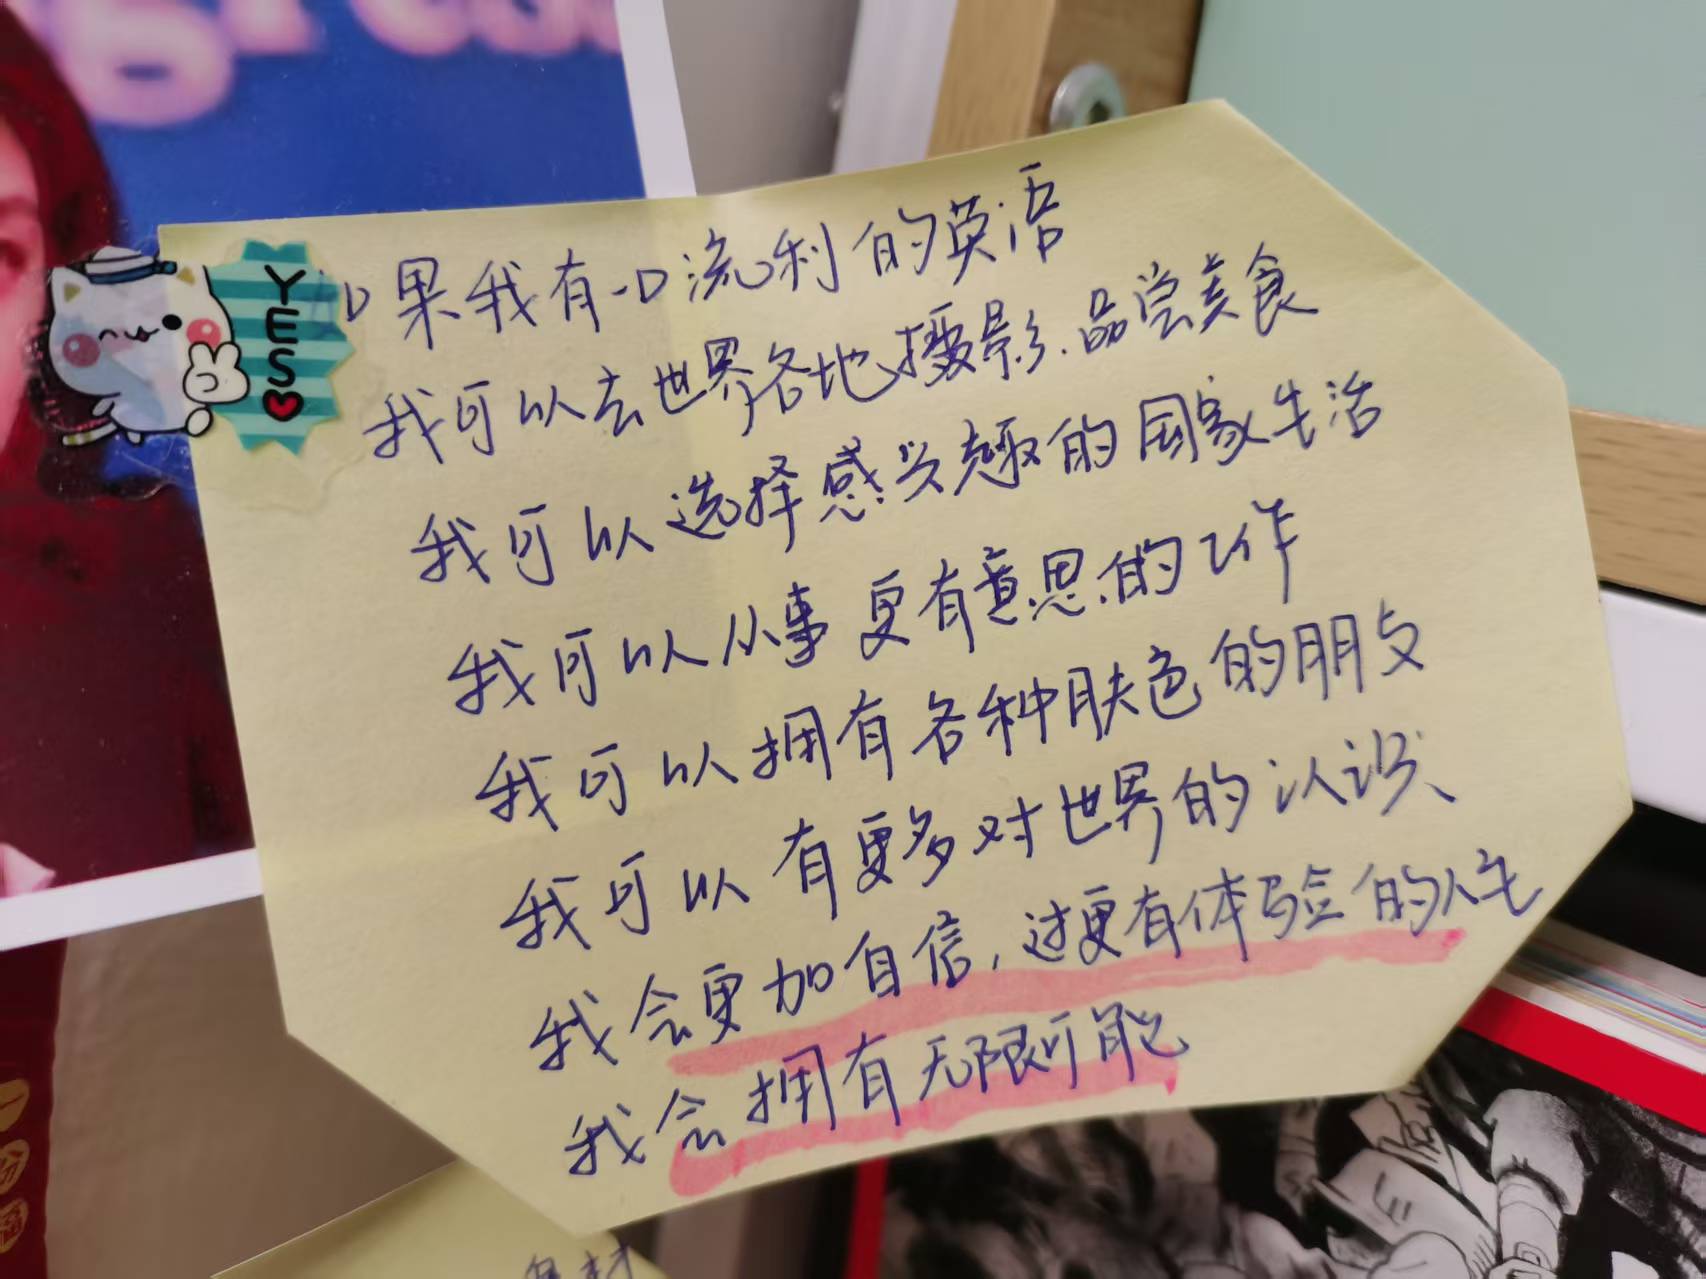 YES
如果我有一口流利的英语
我可以去世界各地摄影.品尝美食
我可以选择感兴趣的国家生活
我可以从事更有意思的工作
我可以拥有各种肤色的朋友
我可以有更多对世界的认识
我会更加自信,过更有体验的人生
我会拥有无限可能